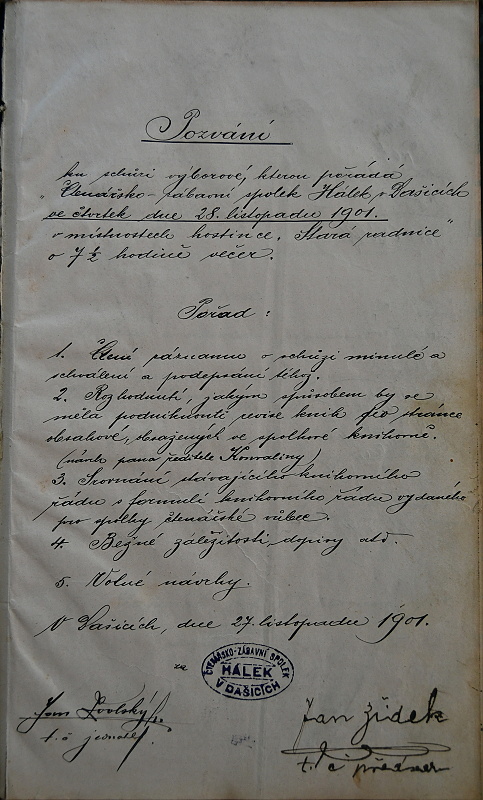 Pozvání
ku schůzi výborové, kterou pořádá
"Čtenářsko-zábavní spolek Hálek v Dašicích
ve čtvrtek dne 28. listopadu 1901.
v místnostech hostince „Stará radnice"
o 7½ hodině večer.
Pořad :
1. Čtení záznamu o schůzi minulé a
schválení a podepsání téhož.
2. Rozhodnutí, jakým způsobem by se
měla podniknouti revise knih po stránce
obsahové, obsažených ve spolkové knihovně.
(návrh pana řídícího Konvaliny)
3. Srovnání stávajícího knihovního
řádu s formulí knihovního řádu vydaného
pro spolky čtenářské vůbec.
4. Bežné záležitosti, dopisy atd.
5. Volné návrhy.
V Dašicích, dne 27. listopadu 1901.
za
ČTENÁŘSKO-ZÁBAVNÍ SPOLEK
HÁLEK
V DAŠICÍCH
Jan
t. č. jednatel.
Jan Žídek
t. č. předseda